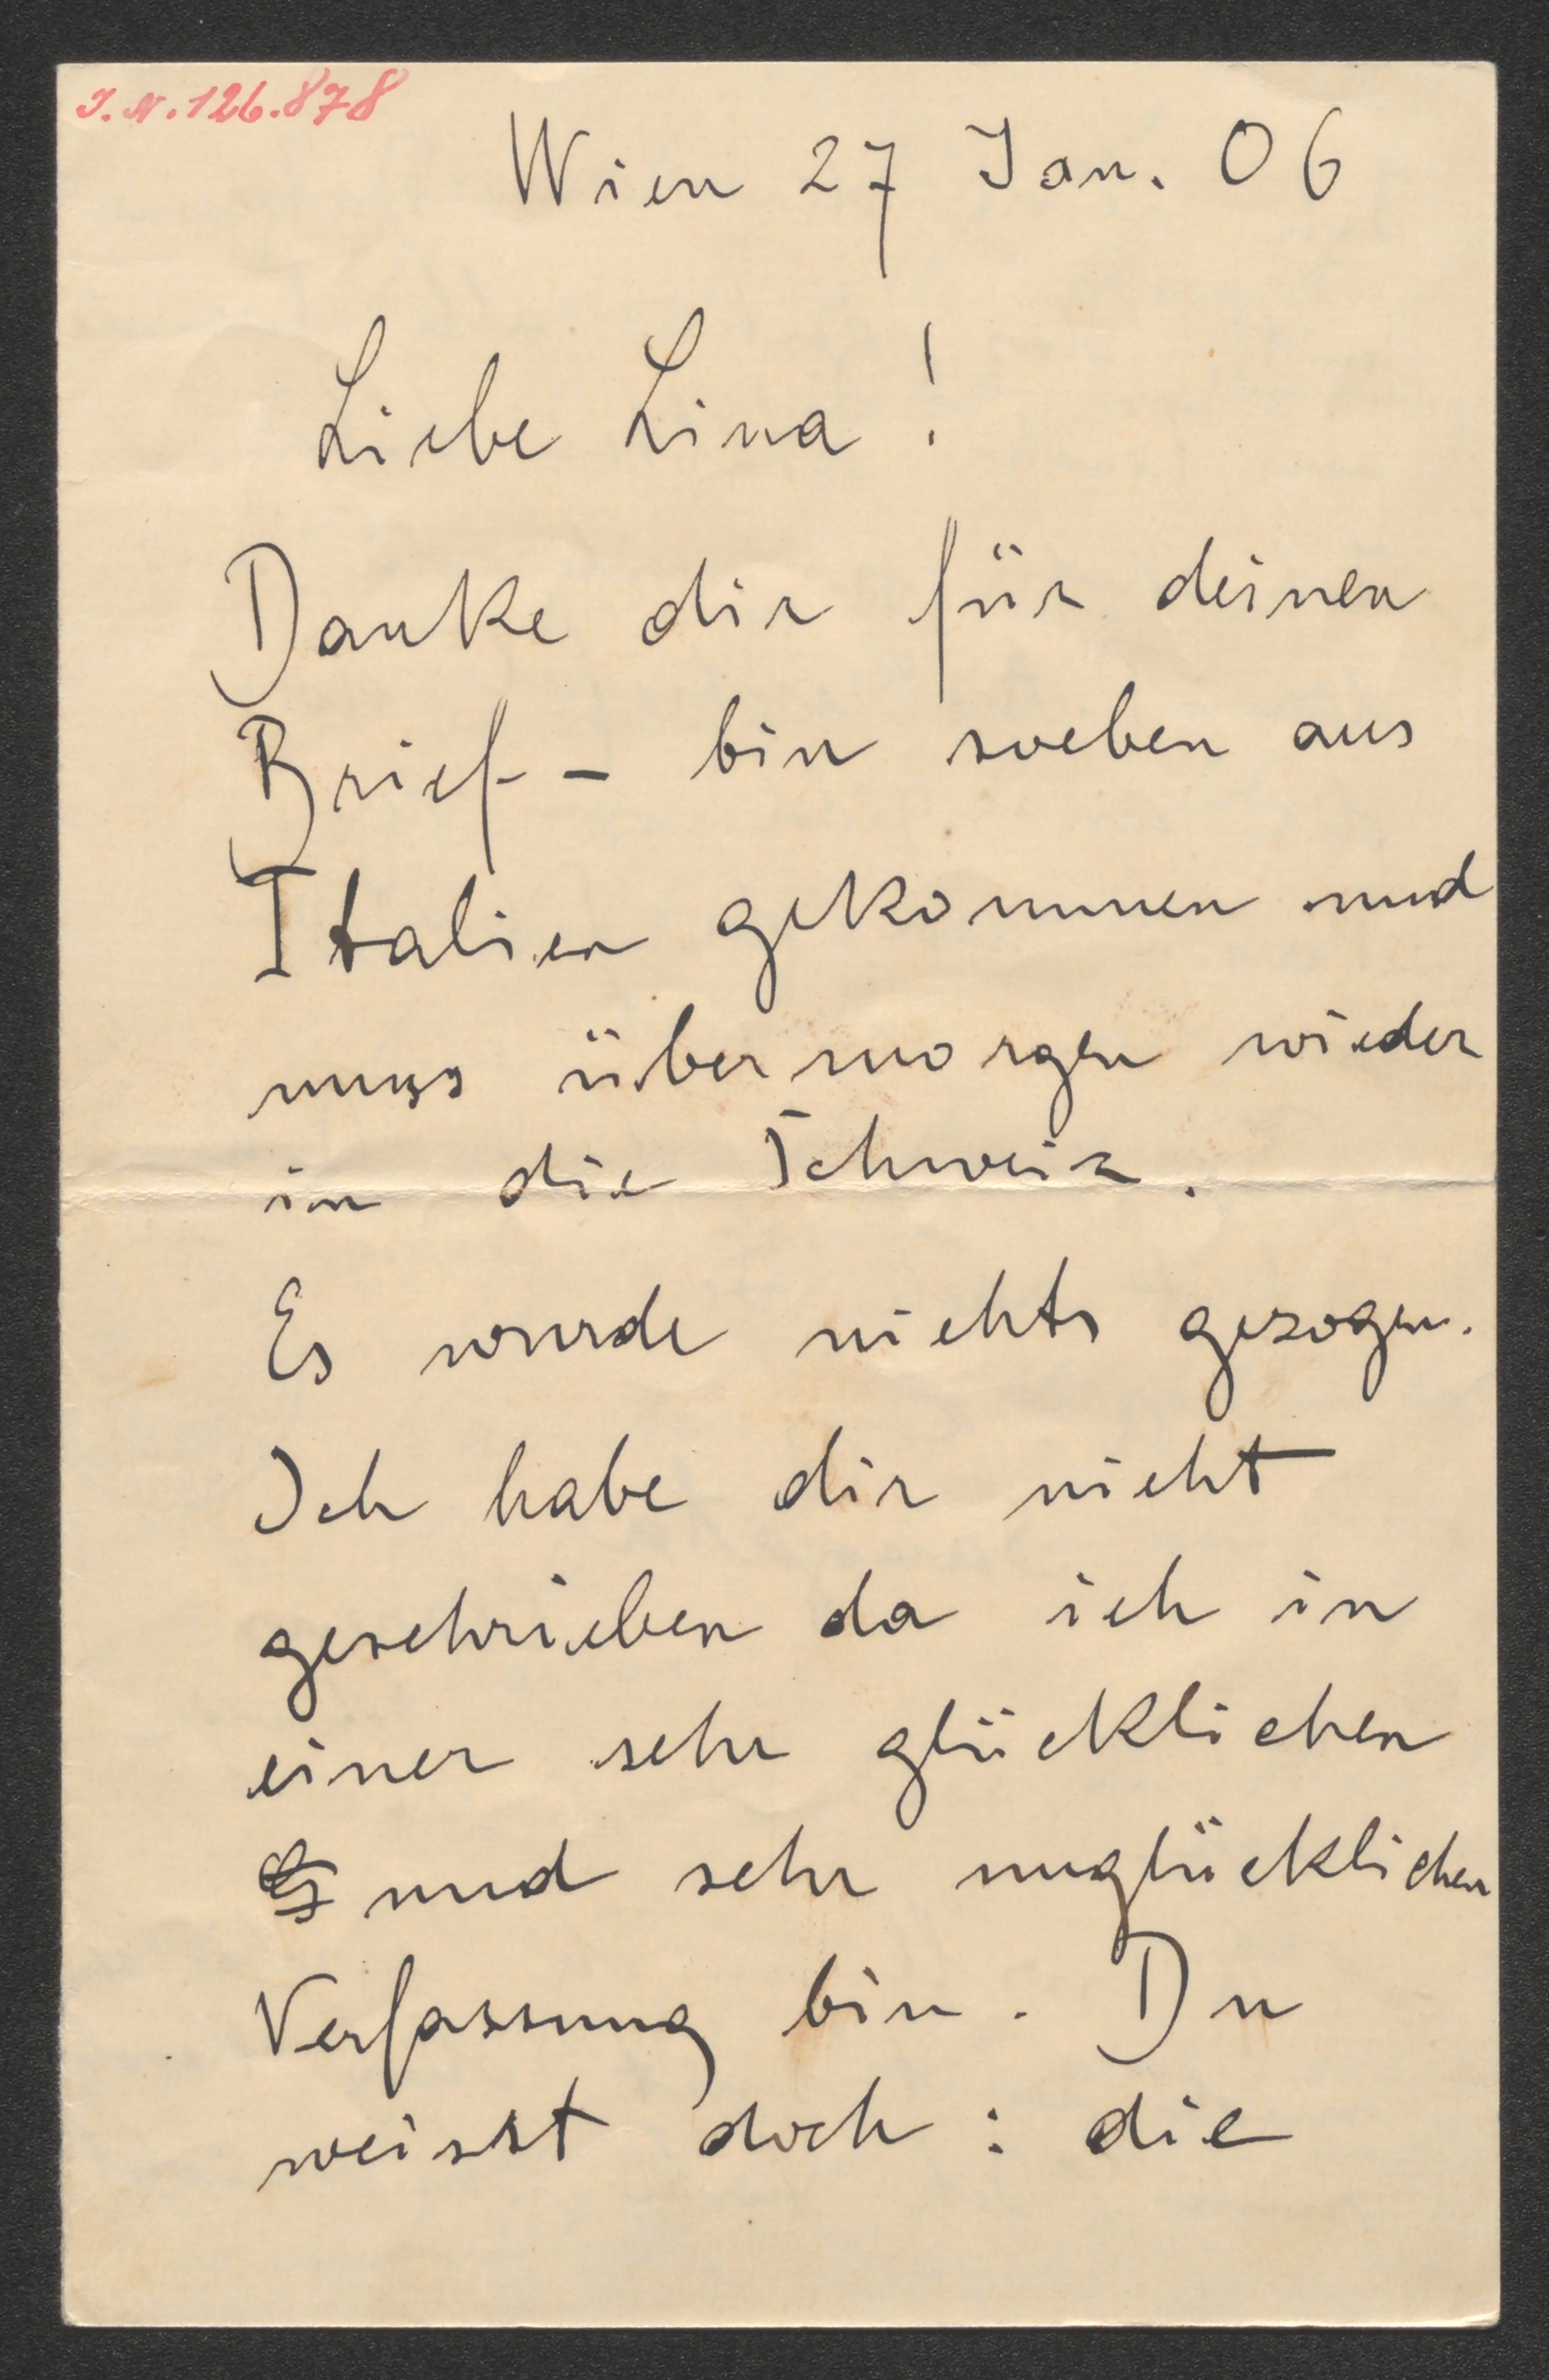 J.N.126.878
Wien 27 Jan. 06
Liebe Lina!
Danke dir für deinen
Brief – bin soeben aus
Italien gekommen und
muss übermorgen wieder
in die Schweiz.
Es wurde nichts gezogen.
Ich habe dir nicht
geschrieben da ich in
einer sehr glücklichen
und sehr unglücklichen
Verfassung bin. Du
weisst doch: die